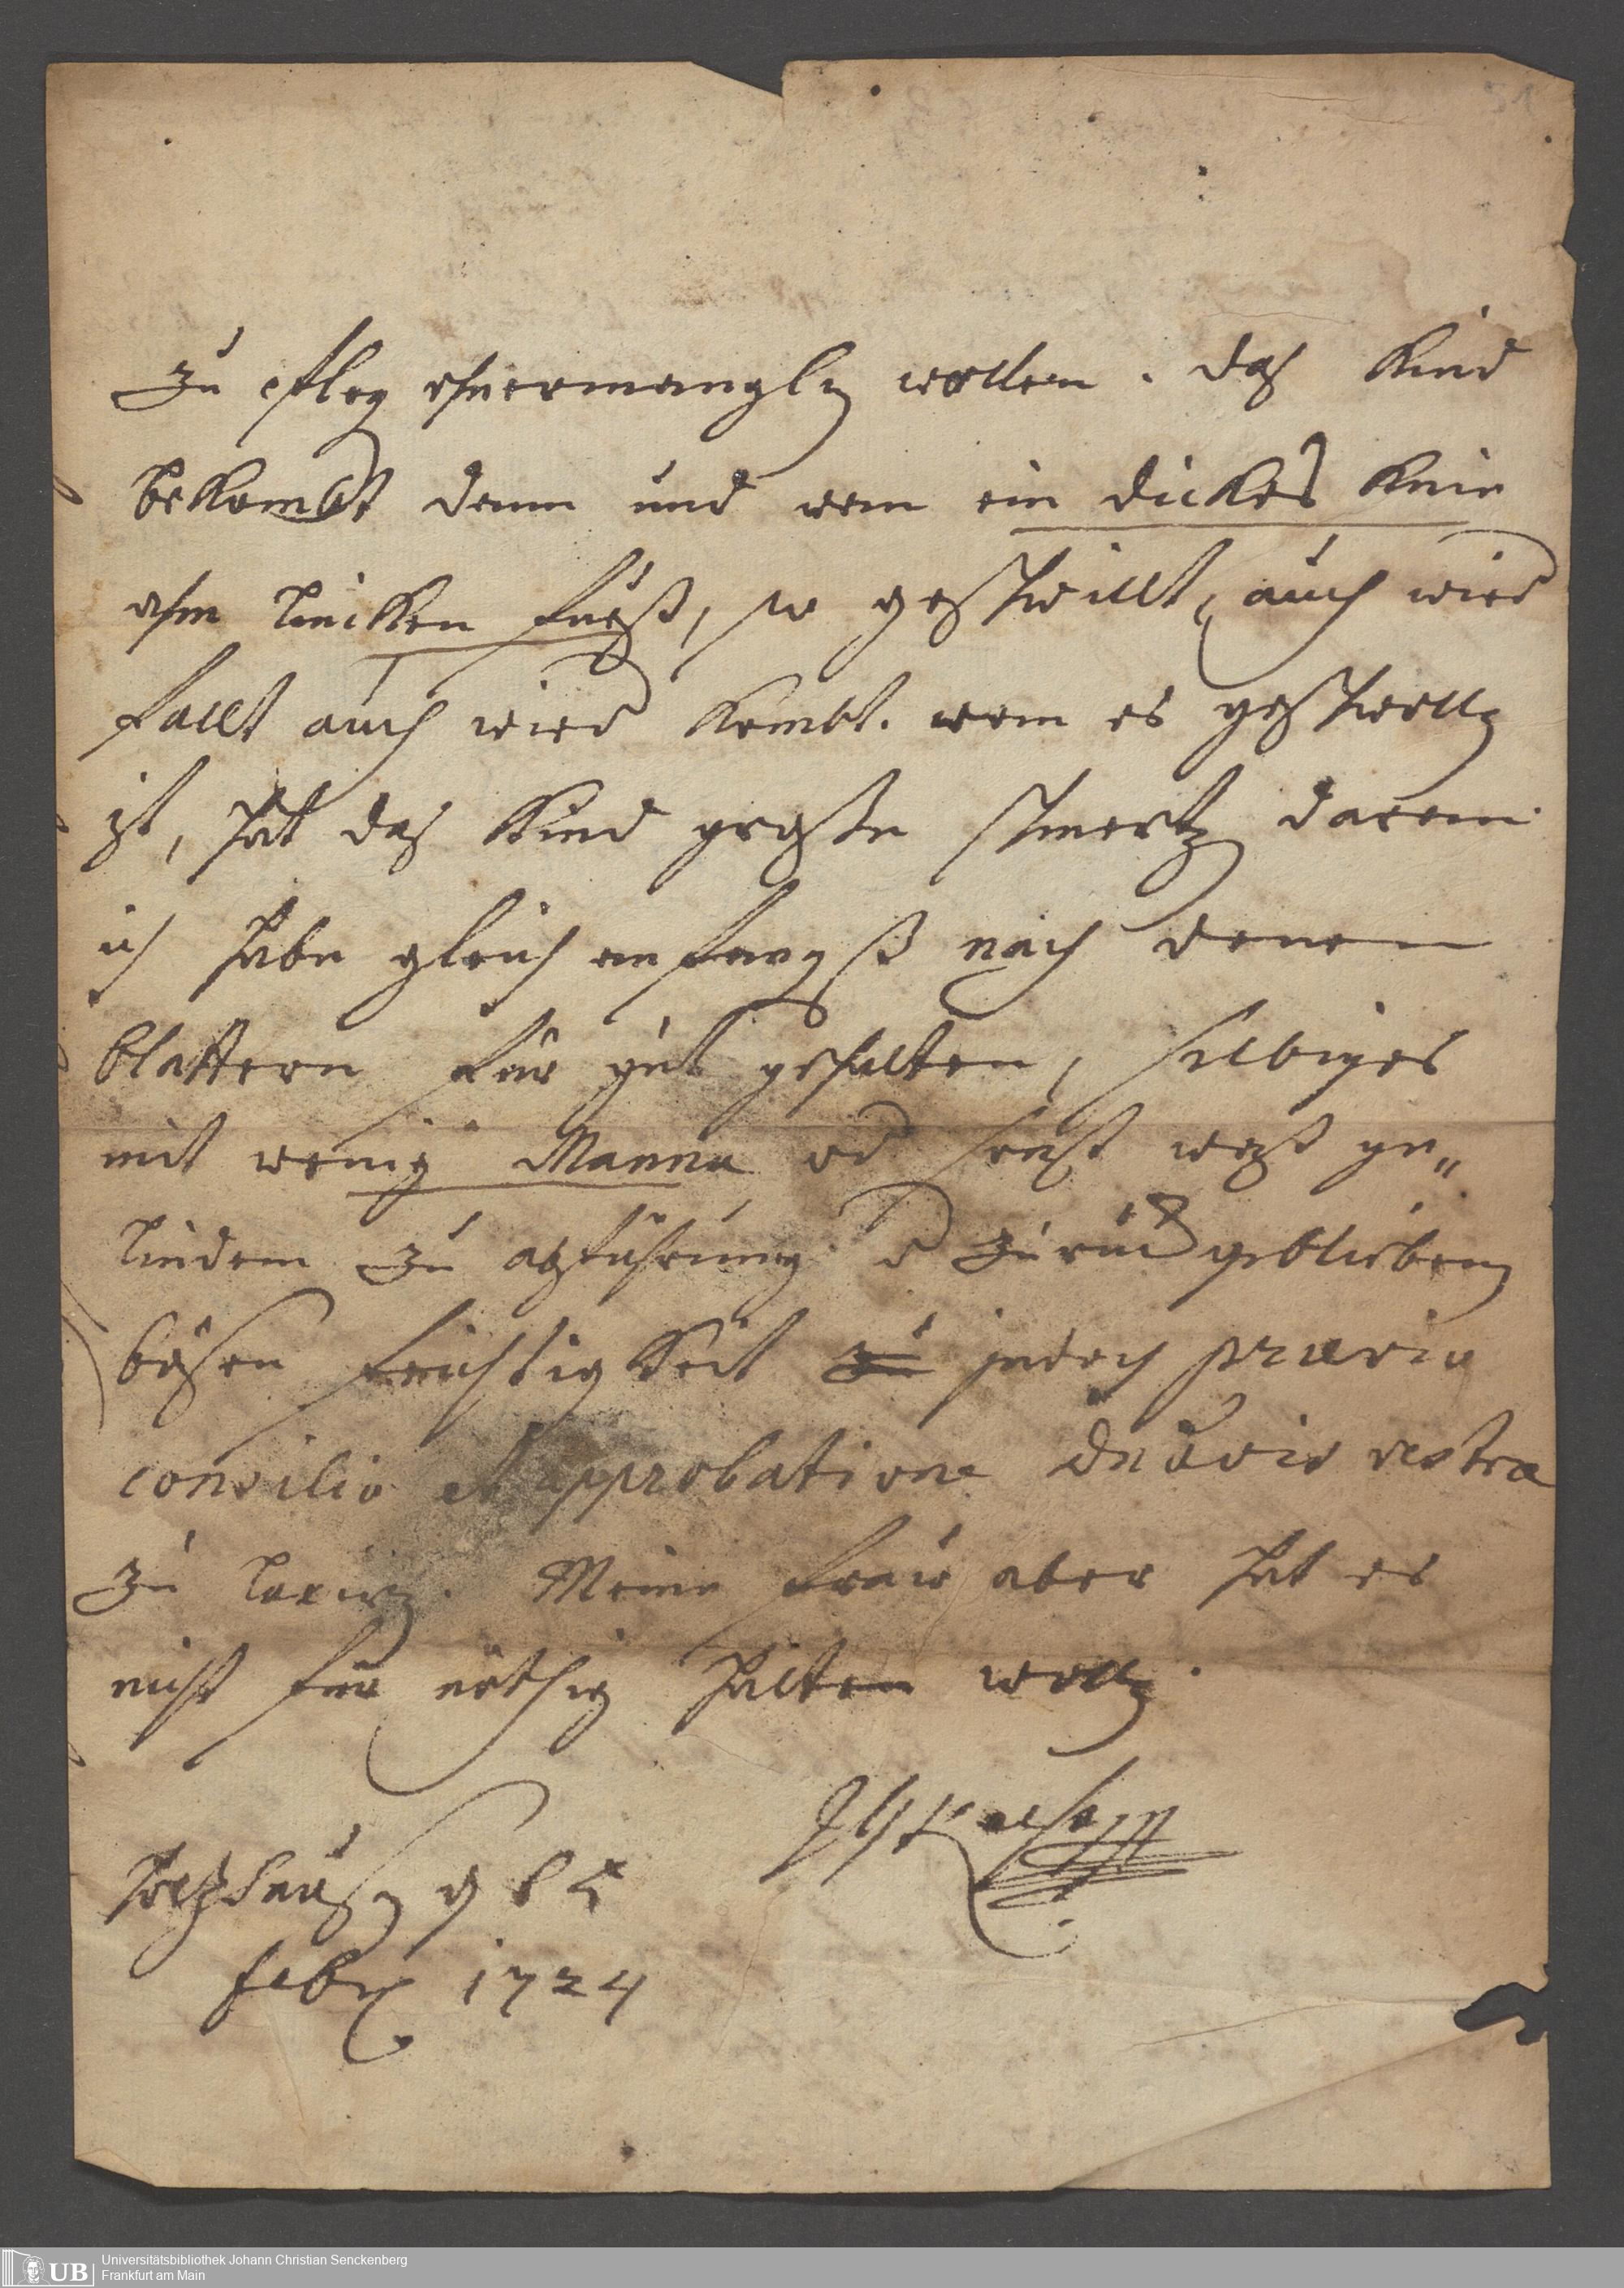 31
zu pfleg ohnermanglen wollen. daß Kind
bekombt dann und wan ein dickes Knie
ahm lincken fueß, so geschwillt, auch wied
fallt auch wied kombt. wan es geschwollen
ist, hat daß Kind große schmertzen daran
ich habe gleich anfangß nach denen
blattern für gut gehalten, selbiges
mit wenig Manna od sonst waß ge„
lindem zu abführung d zurückgeblieben
bösen feuchtigkeit zu jedoch praevio
consilio et approbatione vestra
zu laxirn. Meine fraw aber hat es
nicht für nöthig halten wollen.
Holtzhausen
febr 1724
Universitätsbibliothek Johann Christian Senckenberg
Frankfurt am Main
UB